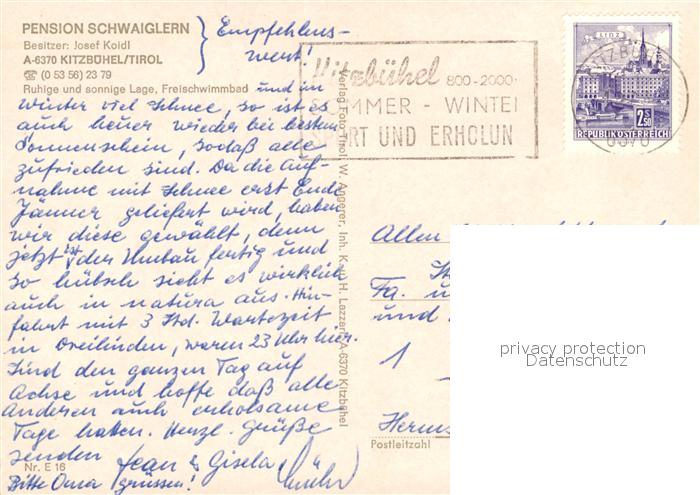 PENSION SCHWAIGLERN
Besitzer: Josef Koidl
A-6370 KITZBÜHEL/TIROL
☎ (0 53 56) 23 79
Ruhige und sonnige Lage, Freischwimmbad
Empfehlens-
wert!
und im
Winter viel Schnee, so ist es
auch heuer wieder bei bestem
Sonnenschein, sodaß alle
zufrieden sind. Da die Auf-
nahme mit Schnee erst Ende
Jänner geliefert wird, haben
wir diese gewählt, denn
jetzt ist der Umbau fertig und
so hübsch sieht es wirklich
auch in natura aus. Hin-
fahrt mit 3 Std. Wartezeit
in Dreilinden, waren 23 Uhr hier.
Sind den ganzen Tag auf
Achse und hoffe daß alle
Anderen auch erholsame
Tage hatten. Herzl. Grüße
senden Jean & Gisela
Nr. E 16
Bitte Oma grüssen!
Verlag Foto Tirol, W. Angerer, Inh. Karl H. Lazzari, A-6370 Kitzbühel
Kitzbühel 800-2000
OMMER - WINTE
RT UND ERHOLUN
LINZ
2.50 S
REPUBLIK ÖSTERREICH
6370
Allen
Fa. u
und
1
Herms
Postleitzahl
privacy protection
Datenschutz